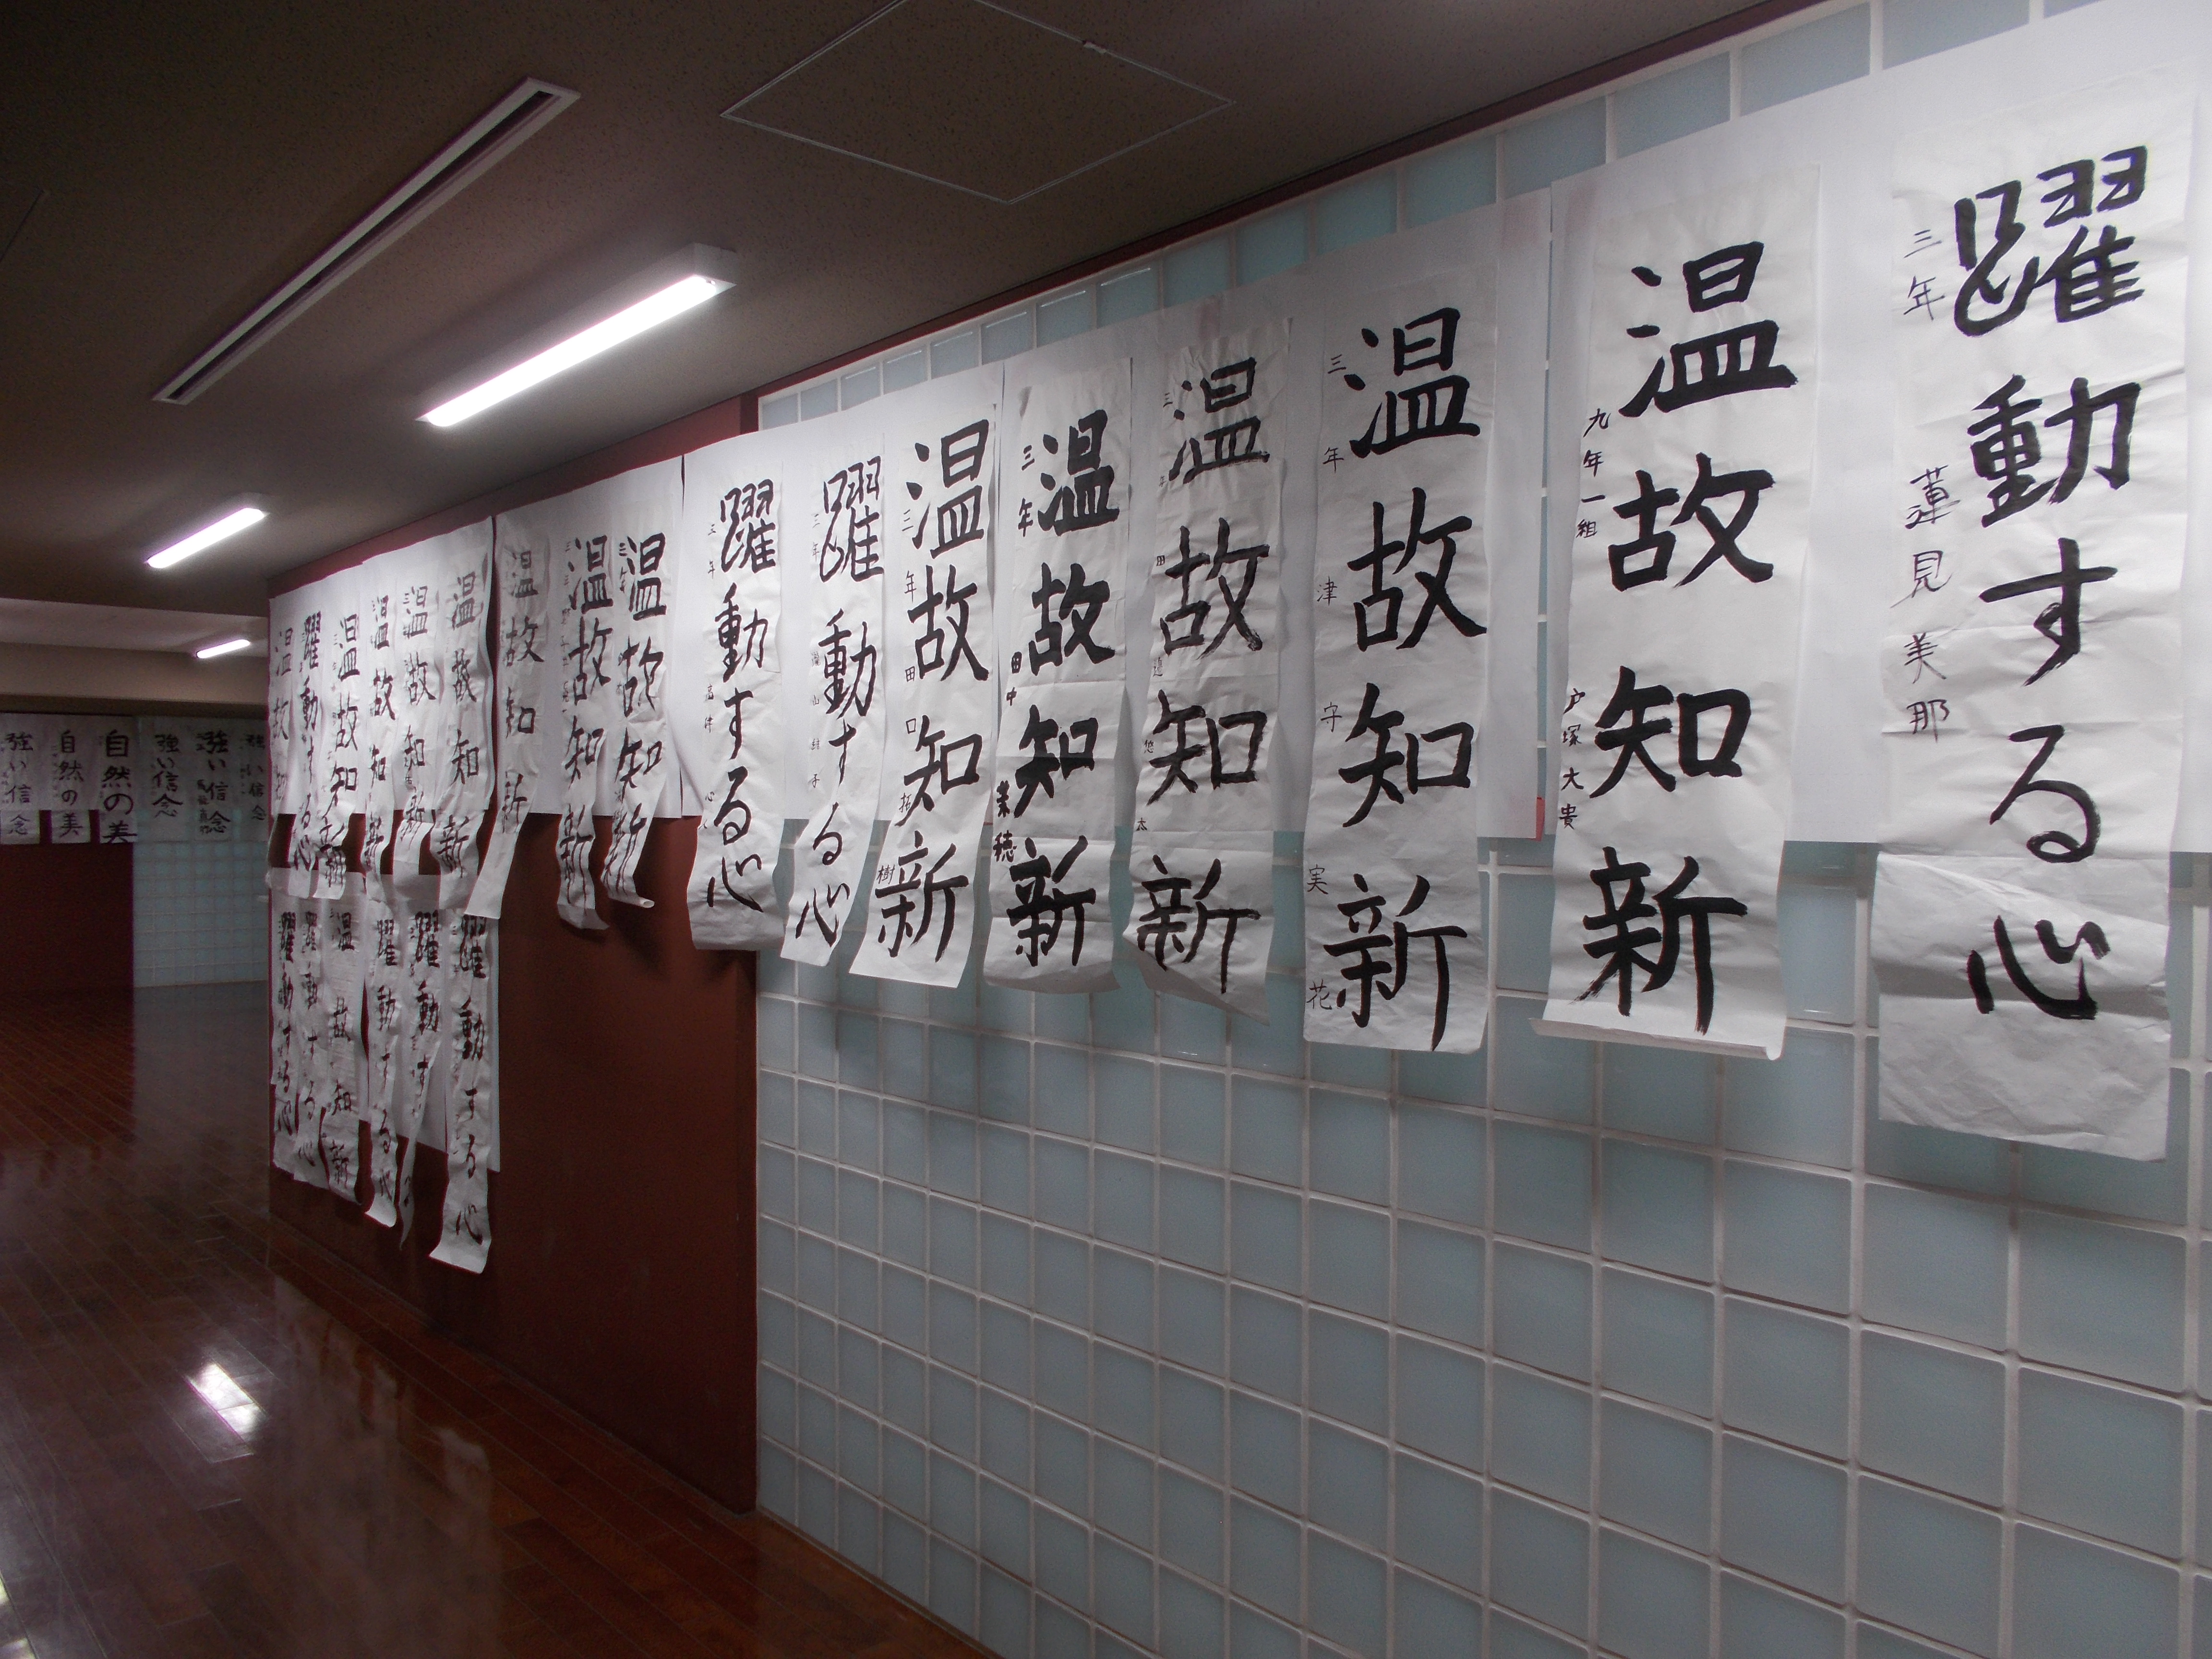 躍動する心
三年 蓮見美那
温故知新
九年一組 戸塚大貴
温故知新
三年 津守実花
温故知新
温故知新
三年 田中美穂
温故知新
三年 田口拓樹
躍動する心
躍動する心
温故知新
温故知新
温故知新
温故知新
温故知新
温故知新
温故知新
躍動する心
温故
躍動する心
躍動す
躍動する心
温故知新
躍動する心
躍動する心
強い信念
強い信念
強い信念
自然の美
自然の美
強い信念